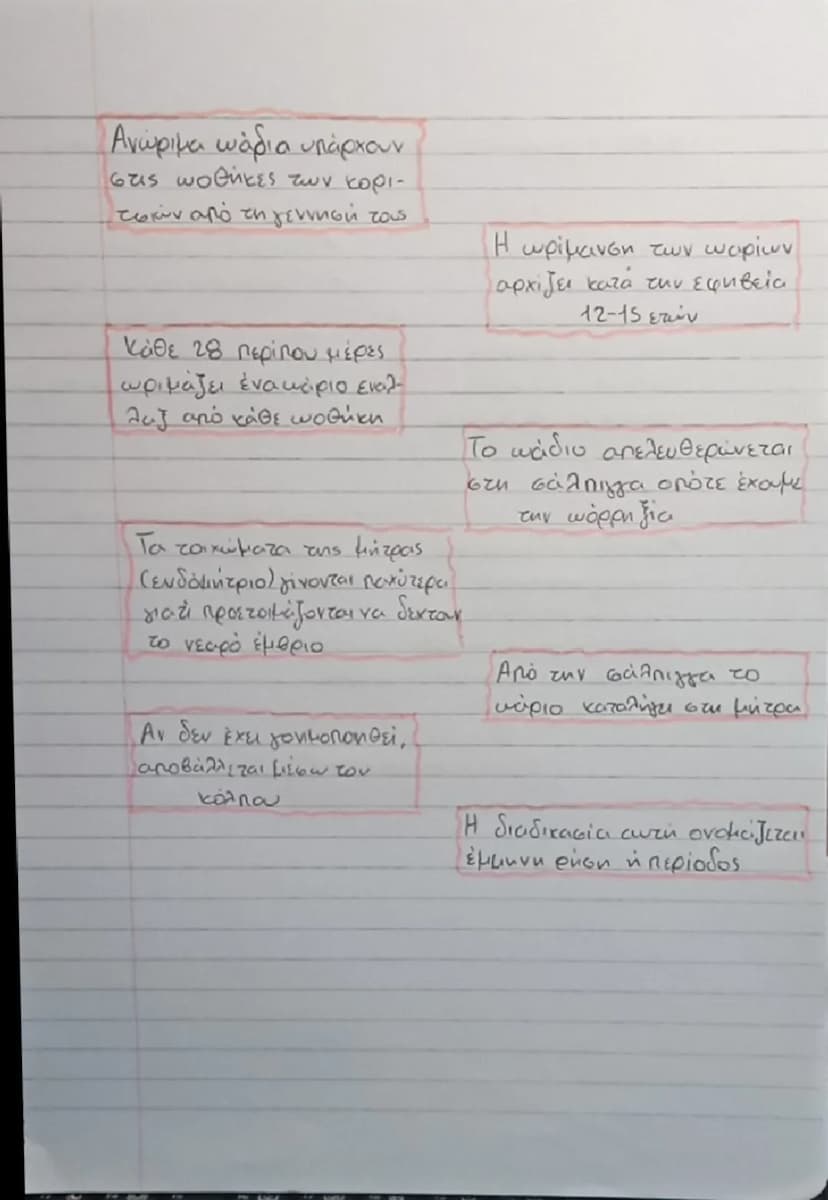 Ανώριμα ωάδια υπάρχουν
στις ωοθήκες των κορι-
τσιών από τη γέννησή τους
Η ωρίμανση των ωαρίων
αρχίζει κατά την εφηβεία
12-15 ετών
Κάθε 28 περίπου μέρες
ωριμάζει ένα ωάριο εναλ-
λαξ από κάθε ωοθήκη
Το ωάδιο απελευθερώνεται
στη σάλπιγγα οπότε έχουμε
την ωόρρηξία
Τα τοιχώματα της μήτρας
(ενδομήτριο) γίνονται παχύτερα
γιατί προετοιμάζονται να δεχτούν
το νεαρό έμβριο
Από την σάλπιγγα το
ωάριο καταλήγει στη μήτρα
Αν δεν έχει γονιμοποιηθεί,
αποβάλλεται μέσω του
κόλπου
Η διαδικασία αυτή ονομάζεται
έμμηνη ρήση ή περίοδος